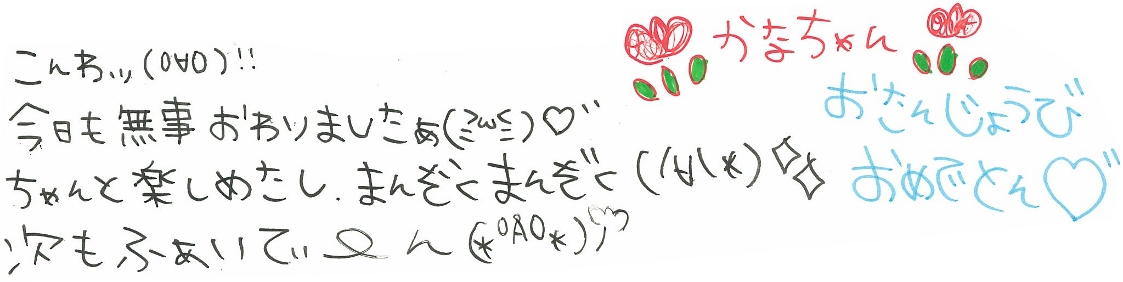 こんわッ(O∀O)!!
今日も無事おわりましたぁ(≧ω≦)♡゛
ちゃんと楽しめたし、まんぞくまんぞく(/∀\*)✧✧
次もふぁいてぃーん(*OAO*)ツ
かなちゃん
おたんじょうび
おめでとん♡゛